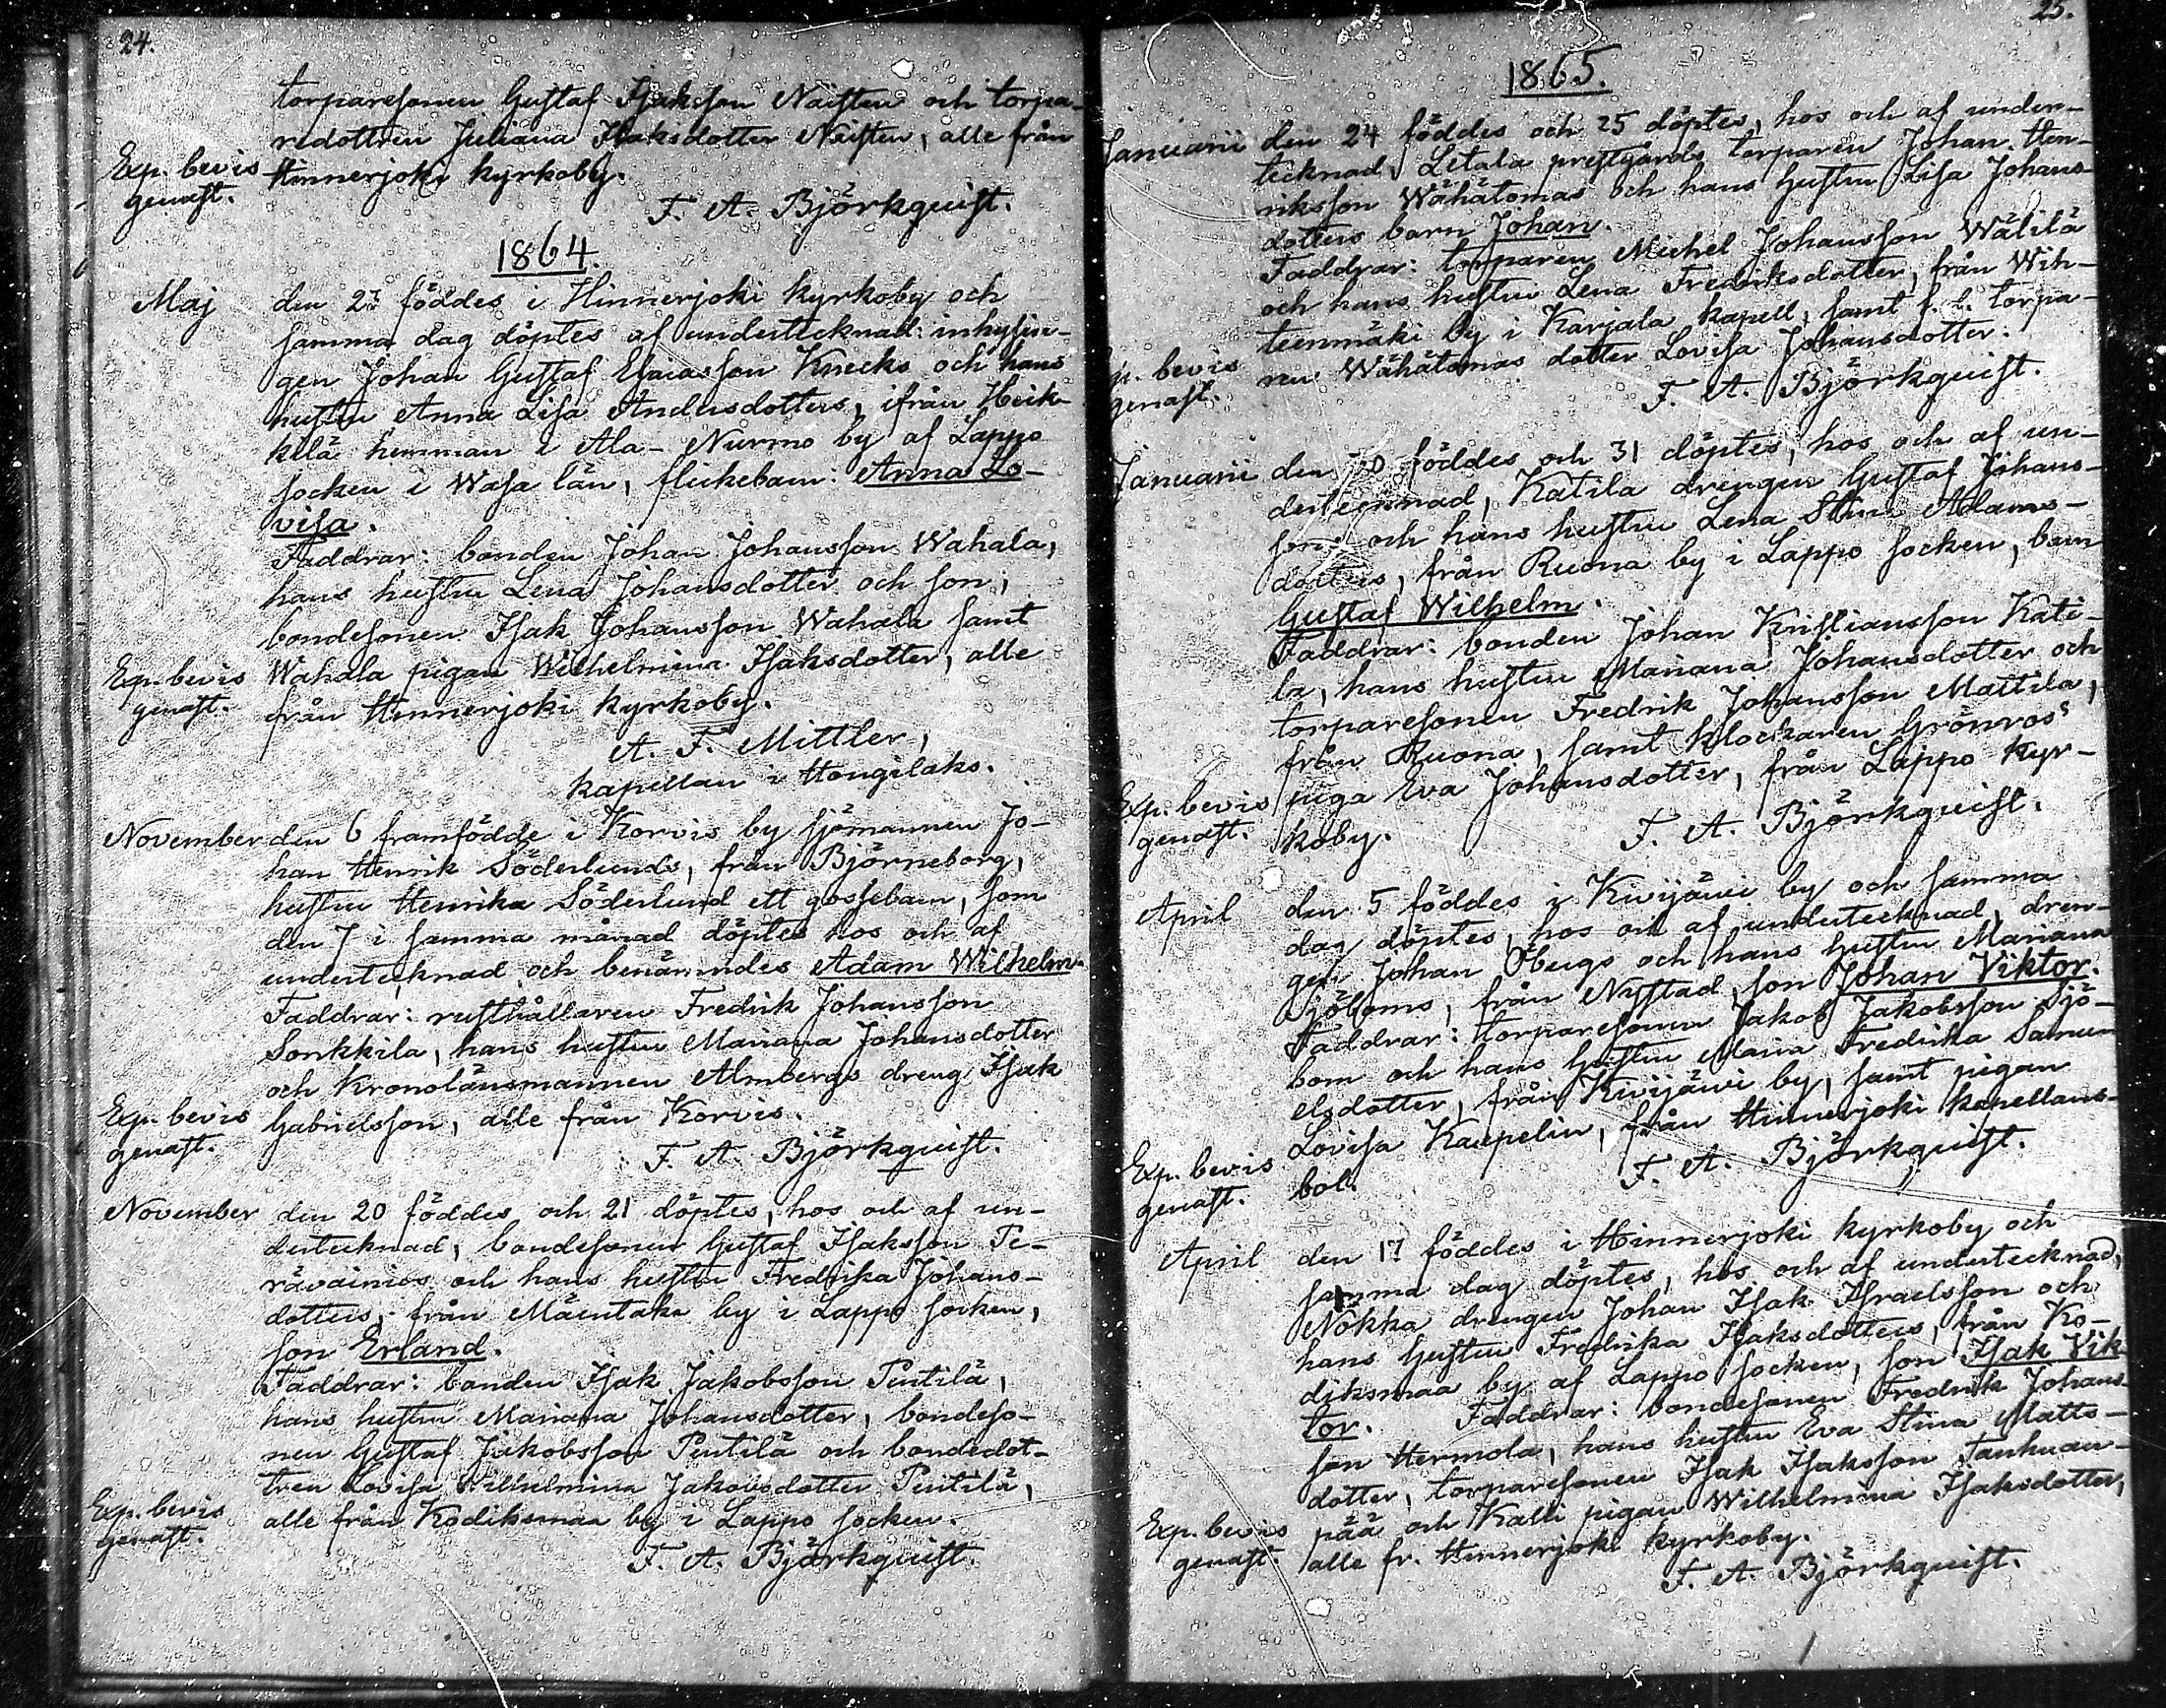 24.
torparesonen Gustaf Isaksson Näisten och torpa-
redottren Juliana Isaksdotter Näisten, alle från
Hinnerjoki kyrkoby.
Exp. bevis
genast.
F. A. Björkquist.
1864.
Maj
den 27 föddes i Hinnerjoki kyrkoby och
samma dag döptes af undertecknad: inhysin-
gen Johan Gustaf Esaiasson Knecks och hans
hustru Anna Lisa Andersdotters, ifrån Heik-
kilä hemman i Ala-Nurmo by af Lappo
socken i Wasa län, flickebarn: Anna Lo-
visa.
Faddrar: bonden Johan Johansson Wahala,
hans hustru Lena Johansdotter och son,
bondesonen Isak Johansson Wahala samt
Wahala pigan Wilhelmina Isaksdotter, alle
från Hinnerjoki kyrkoby.
Exp. bevis
genast.
A. F. Mittler,
kapellan i Hongilaks.
November
den 6 framfödde i Korvis by sjömannen Jo-
han Henrik Söderlunds, från Björneborg,
hustru Henrika Söderlund ett gossebarn, som
den 7 i samma månad döptes hos och af
undertecknad och benämndes Adam Wilhelm.
Faddrar: rusthållaren Fredrik Johansson
Sonkkila, hans hustru Mariana Johansdotter
och Kronolänsmannen Almbergs dreng Isak
Gabrielsson, alle från Korvis.
Exp. bevis
genast.
F. A. Björkquist.
November
den 20 föddes och 21 döptes, hos och af un-
dertecknad, bondesonen Gustaf Isaksson Pe-
rävainios och hans hustru Fredrika Johans-
dotters, från Mäentaka by i Lappo socken,
son Erland.
Faddrar: bonden Isak Jakobsson Pentilä,
hans hustru Mariana Johansdotter, bondeso-
nen Gustaf Jakobsson Pentilä och bondedot-
tren Lovisa Wilhelmina Jakobsdotter Pentilä,
alle från Kodiksmaa by i Lappo socken.
Exp. bevis
genast.
F. A. Björkquist.
25.
1865.
Januarii
den 24 föddes och 25 döptes, hos och af under-
tecknad, Letala prestgårds torparen Johan Hen-
riksson Wähätomas och hans hustru Lisa Johans-
dotters barn Johan.
Faddrar: torparen Michel Johansson Wälilä
och hans hustru Lena Fredriksdotter, från Wih-
teenmäki by i Karjala kapell, samt f. d. torpa-
ren Wähätomas dotter Lovisa Johansdotter.
p. bevis
genast.
F. A. Björkquist.
Januarii
den 30 föddes och 31 döptes, hos och af un-
dertecknad, Katila drengen Gustaf Johans-
sons och hans hustru Lena Stina Adams-
dotters, från Ruona by i Lappo socken, barn
Gustaf Wilhelm.
Faddrar: bonden Johan Kristiansson Kati-
la, hans hustru Mariana Johansdotter och
torparesonen Fredrik Johansson Mattila,
från Ruona, samt klockaren Grönroos'
piga Eva Johansdotter, från Lappo kyr-
koby.
Exp. bevis
genast.
F. A. Björkquist.
April
den 5 föddes i Kivijärvi by och samma
dag döptes, hos och af undertecknad, dren-
gen Johan Öbugs och hans hustru Mariana
Sjöboms, från Nystad, son Johan Viktor.
Faddrar: torparesonen Jakob Jakobsson Sjö-
bom och hans hustru Maria Fredrika Samu-
elsdotter, från Kivijärvi by, samt pigan
Lovisa Kaupelin, från Hinnerjoki kapellans-
bol.
Exp. bevis
genast.
F. A. Björkquist.
April
den 17 föddes i Hinnerjoki kyrkoby och
samma dag döptes, hos och af undertecknad,
Nokka drengen Johan Isak Israelsson och
hans hustru Fredrika Isaksdotters, från Ko-
diksmaa by af Lappo socken, son Isak Vik-
tor. Faddrar: bondesonen Fredrik Johans-
son Hermola, hans hustru Eva Stina Matts-
dotter, torparesonen Isak Isaksson Tanhuan-
pää och Kalli pigan Wilhelmina Isaksdotter,
alle fr. Hinnerjoki kyrkoby.
Exp. bevis
genast.
F. A. Björkquist.